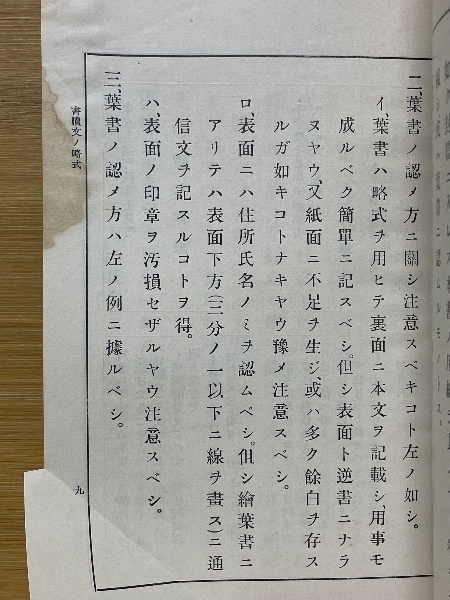 二、葉書ノ認メ方ニ關シ注意スベキコト左ノ如シ。
イ、葉書ハ略式ヲ用ヒテ裏面ニ本文ヲ記載シ、用事モ
成ルベク簡單ニ記スベシ。但シ表面ト逆書ニナラ
ヌヤウ、又紙面ニ不足ヲ生ジ、或ハ多ク餘白ヲ存ス
ルガ如キコトナキヤウ豫メ注意スベシ。
ロ、表面ニハ住所氏名ノミヲ認ムベシ。但シ繪葉書ニ
アリテハ表面下方(三分ノ一以下ニ線ヲ畫ス)ニ通
信文ヲ記スルコトヲ得。
ハ、表面ノ印章ヲ汚損セザルヤウ注意スベシ。
三、葉書ノ認メ方ハ左ノ例ニ據ルベシ。
書牘文ノ略式
九